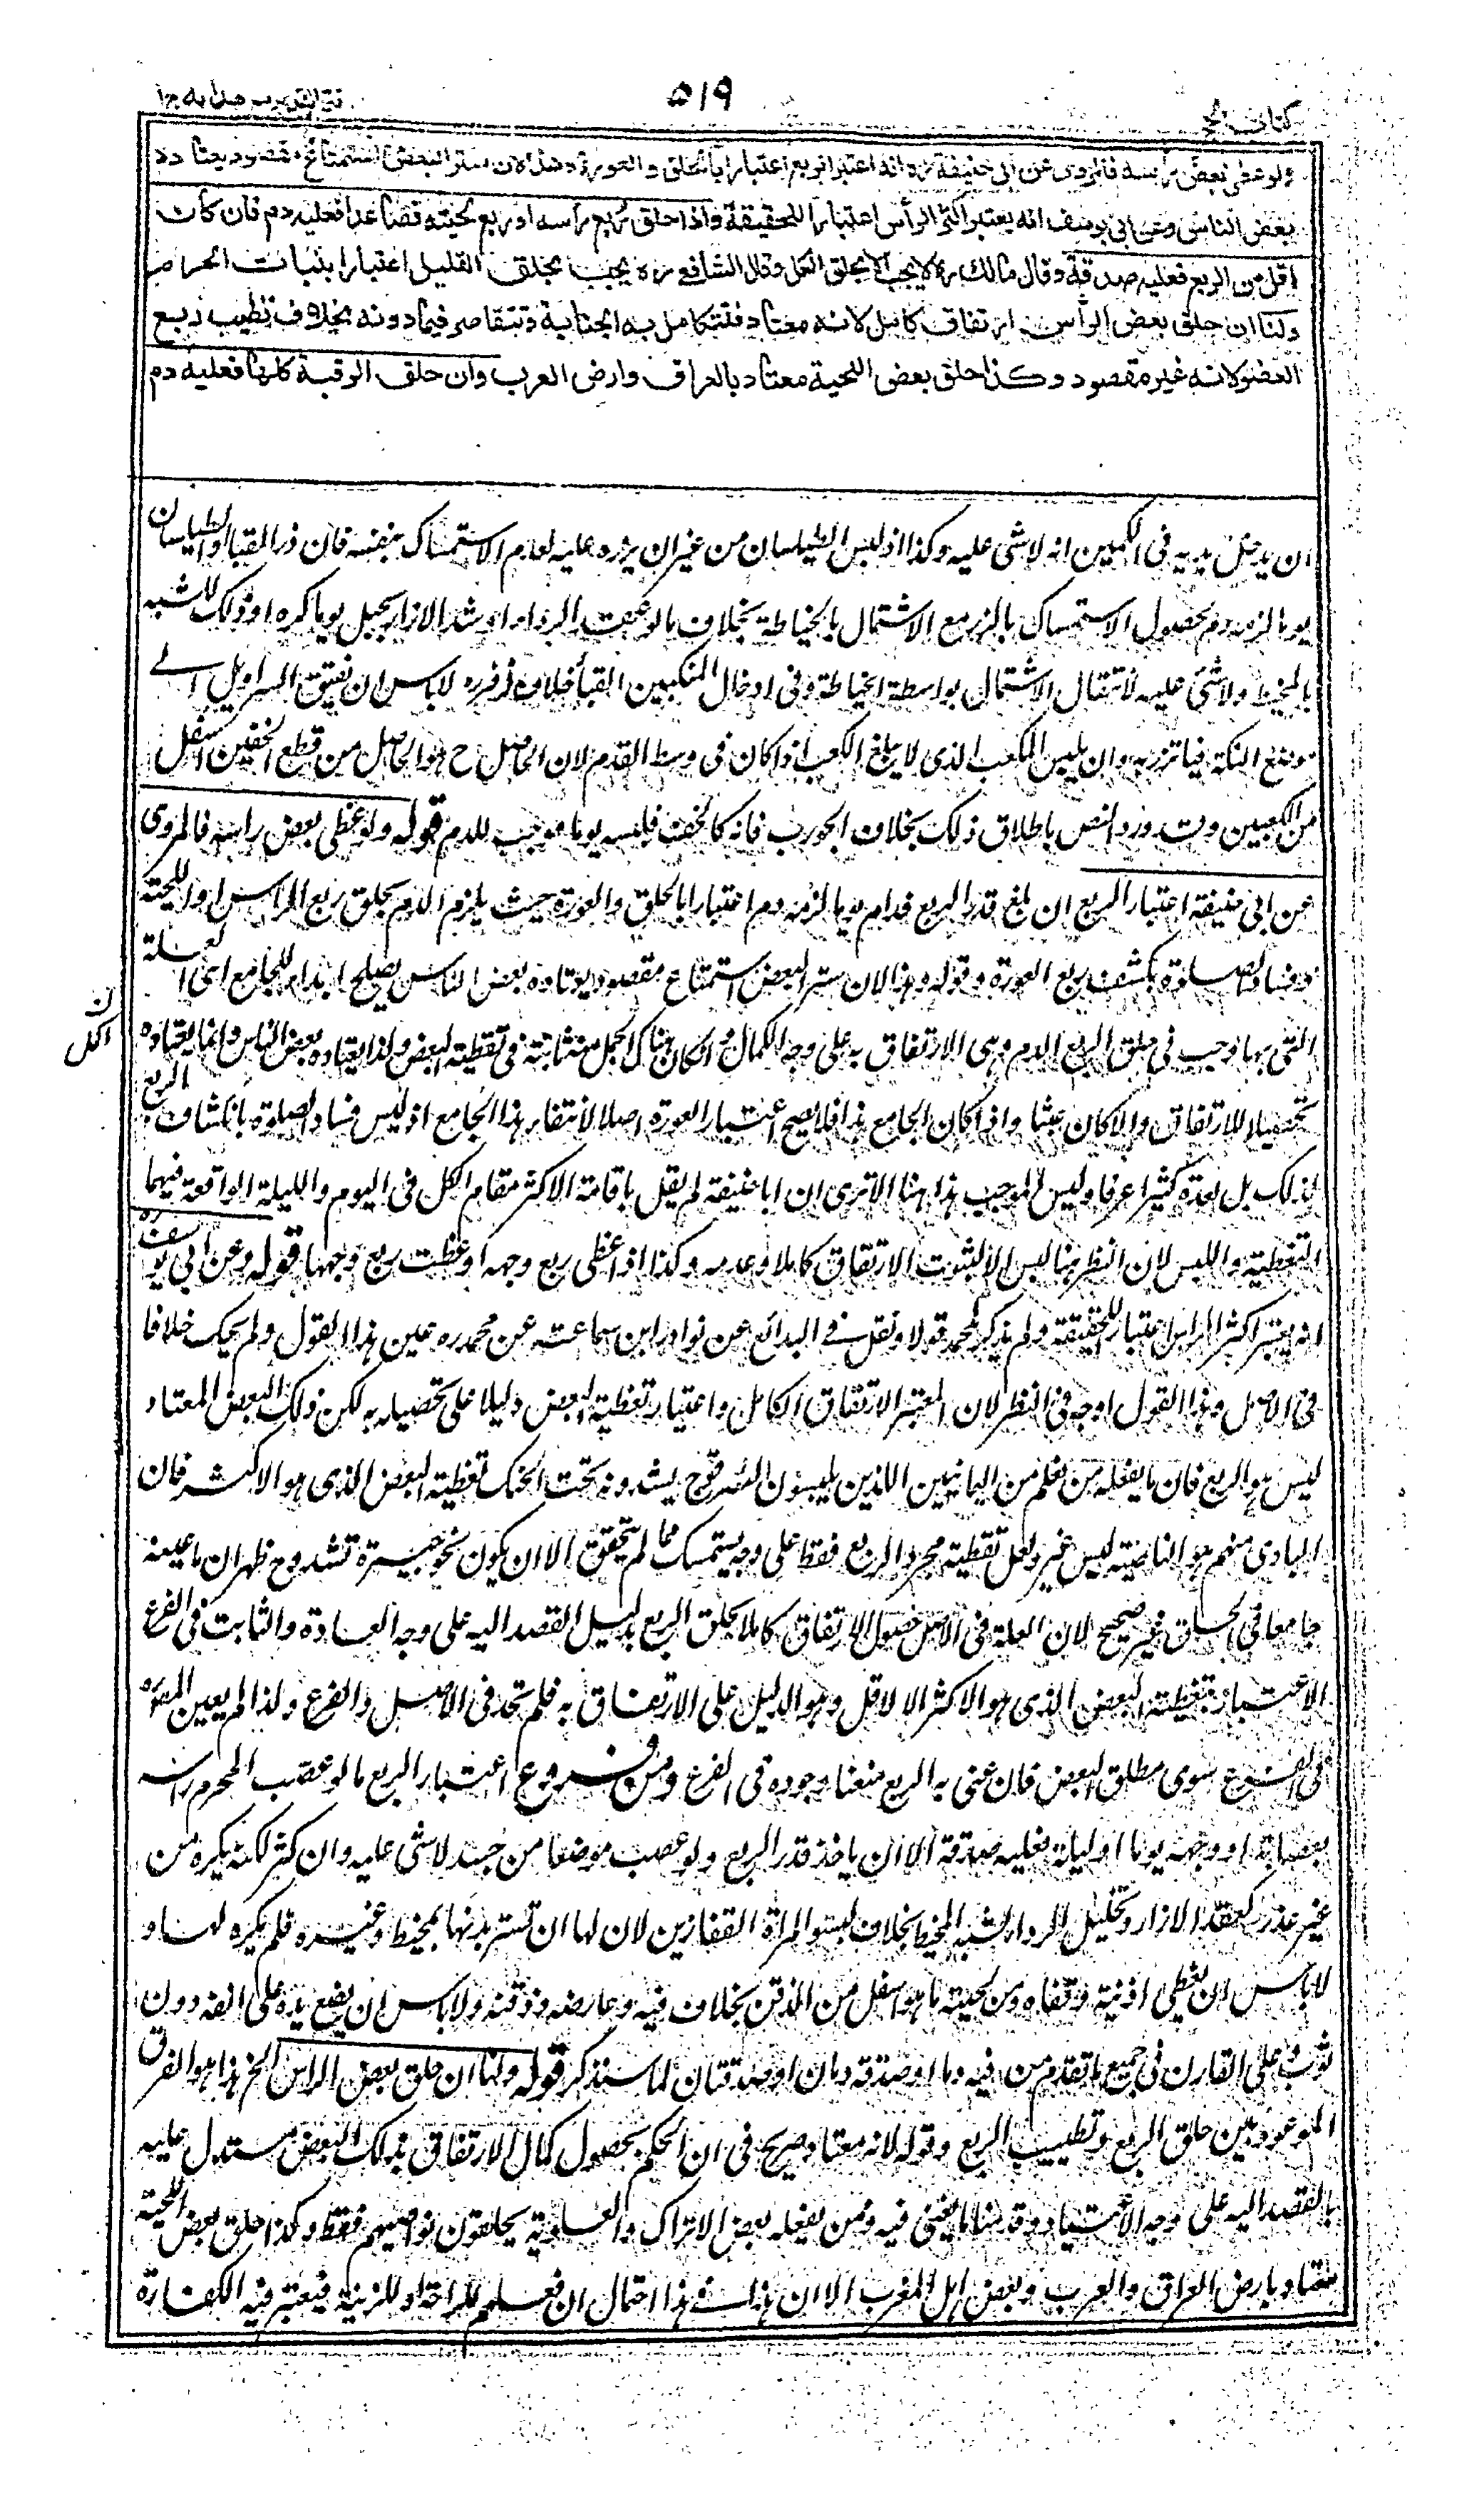 كتاب الحج
٥١٩
فتح القدير مع هدايه ج١
ولو غطى بعض رأسه فالمروى عن ابى حنيفة رہ انه اعتبر الربع اعتبارا بالحلق والعورة وهذا لان ستر البعض استمتاع مقصود يعتاده
بعض الناس وعن ابى يوسف انه يعتبر اكثر الرأس اعتبارا للحقيقة واذا حلق ربع رأسه او ربع لحيته فصاعدا فعليه دم فان كان
اقل من الربع فعليه صدقة وقال مالك رہ لا يجب الا بحلق الكل وقال الشافعے رہ يجب بحلق القليل اعتبارا بنبات الحرم
ولنا ان حلق بعض الرأس ارتفاق كامل لانه معتاد فتتكامل به الجناية وتتقاصر فيما دونه بخلاف تطييب ربع
العضو لانه غير مقصود وكذا حلق بعض اللحية معتاد بالعراق وارض العرب وان حلق الرقبة كلها فعليه دم
ان يدخل يديه فى الكمين انه لا شى عليه وكذا اذا لبس الطيلسان من غير ان يزره عليه لعدم الاستمساك بنفسه فان زر القبا او الطيلسان
يوما لزمه دم لحصول الاستمساك بالزر مع الاشتمال بالخياطة بخلاف ما لو عقد الرداء او شد الازار بحبل يوما كره له ذلك للشبه
بالمخيط ولا شئ عليه لانتفاء الاشتمال بواسطة الخياطة وفى ادخال المنكبين القبا خلاف زفر رہ لا باس ان يفتق السراويل الے
موضع التكة فيا تزر به وان يلبس المكعب الذى لا يبلغ الكعب اذا كان فى وسط القدم لان الحاصل ح هو الحاصل من قطع الخفين اسفل
من الكعبين وقد ورد النص باطلاق ذلك بخلاف الجورب فانه كالخف فلبسه يوما موجب للدم قوله ولو غطى بعض راسه فالمروى
عن ابى حنيفة اعتبار الربع ان بلغ قدر الربع فدام يوما لزمه دم اعتبارا بالحلق والعورة حيث يلزم الدم بحلق ربع الراس او اللحية
وفساد الصلوة بكشف ربع العورة وقوله وهذا لان ستر البعض استمتاع مقصود يعتاده بعض الناس يصلح ابداء للجامع اى العلة
التى بها وجب فى حلق الربع الدم وهى الارتفاق به على وجه الكمال وان كان هناك اكمل منه ثابتة فى تغطية البعض ولذا يعتاده بعض الناس وانما يعتاده
تحصيلا للارتفاق والا كان عبثا واذا كان الجامع هذا فلا يصح اعتبار العورة اصلا لانتفاء هذا الجامع اذ ليس فساد الصلوة بانكشاف الربع
لذلك بل لعده كثيرا عرفا وليس الموجب هذا هنا الا ترى ان ابا حنيفة لم يقل باقامة الاكثر مقام الكل فى اليوم والليلة الواقعة فيهما
التغطية واللبس لان النظر هنا ليس الا لثبوت الارتفاق كاملا وعدمه وكذا اذا غطى ربع وجهه او غطت ربع وجهها قوله وعن ابى يوسف رہ
انه يعتبر اكثر الراس اعتبارا للحقيقة ولم يذكر لمحمد قولا ونقل فے البدائع عن نوادر ابن سماعة عن محمد رہ عين هذا القول ولم يحك خلافا
فى الاصل وهذا القول اوجه فى النظر لان المعتبر الارتفاق الكامل واعتبار تغطية البعض دليلا على تحصيله به لكن ذلك البعض المعتاد
ليس هو الربع فان ما يفعله من نعلم من اليمانيين الذين يلبسون السرقوج يشدونه تحت الحنك تغطية البعض الذى هو الاكثر فان
البادى منهم هو الناصية ليس غير ولعل تغطية مجرد الربع فقط على وجه يستمسك مما لم يتحقق الا ان يكون نحو جبيرة تشد وح ظهر ان ما عينه
جامعا فى الحلق غير صحيح لان العلة فى الاصل حصول الارتفاق كاملا بحلق الربع بدليل القصد اليه على وجه العادة والثابت فى الفرع
الاعتبار بتغطية البعض الذى هو الاكثر لا الاقل وهو الدليل على الارتفاق به فلم يتحد فى الاصل والفرع ولذا لم يعين المصنف رہ
فى الفرع سوى مطلق البعض فان عنى به الربع منعنا وجوده فى الفرع ومن فروع اعتبار الربع ما لو عصب المحرم راسه
بعصابة او وجهه يوما او ليلة فعليه صدقة الا ان ياخذ قدر الربع ولو عصب موضعا من جسده لا شى عليه وان كثر لكنه يكره من
غير عذر كعقد الازار وتخليل الرداء لشبه المخيط بخلاف لبس المراة القفازين لان لها ان تستر بدنها بمخيط وغيره فلم يكره لها و
لا باس ان يغطى اذنيه وقفاه ومن لحيته ما هو اسفل من الذقن بخلاف فيه وعارضه وذقنه ولا باس ان يضع يده على انفه دون
ثوب وعلى القارن فى جميع ما تقدم من فيه دم او صدقة دمان او صدقتان لما سنذكر قوله ولنا ان حلق بعض الراس الخ هذا هو الفرق
الموعود بين حلق الربع وتطييب الربع وقوله لانه معتاد صريح فى ان الحكم بحصول كمال الارتفاق بذلك البعض مستدل عليه
بالقصد اليه على وجه الاعتياد وقد بينا ما يغنى فيه وممن يفعله بعض الاتراك والعلوية يحلقون نواصيهم فقط وكذا حلق بعض اللحية
معتاد بارض العراق والعرب وبعض اهل المغرب الا ان هذا فے هذا احتمال ان فعلهم للراحة او للزينة فيعتبر فيه الكفارة